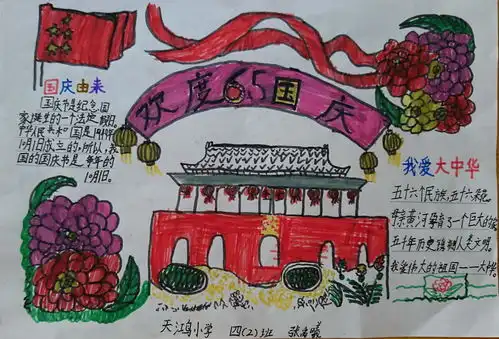 欢度65国庆
国庆由来
国庆节是纪念国
家诞生的一个法定假日,
中华人民共和国是1949年
10月1日成立的,所以,我
国的国庆节是每年的
10月1日。
我爱大中华
五十六个民族,五十六朵花
黄河孕育了一个巨大的
五千年历史
我爱伟大的祖国一一大中华
天鸿小学 四(2)班